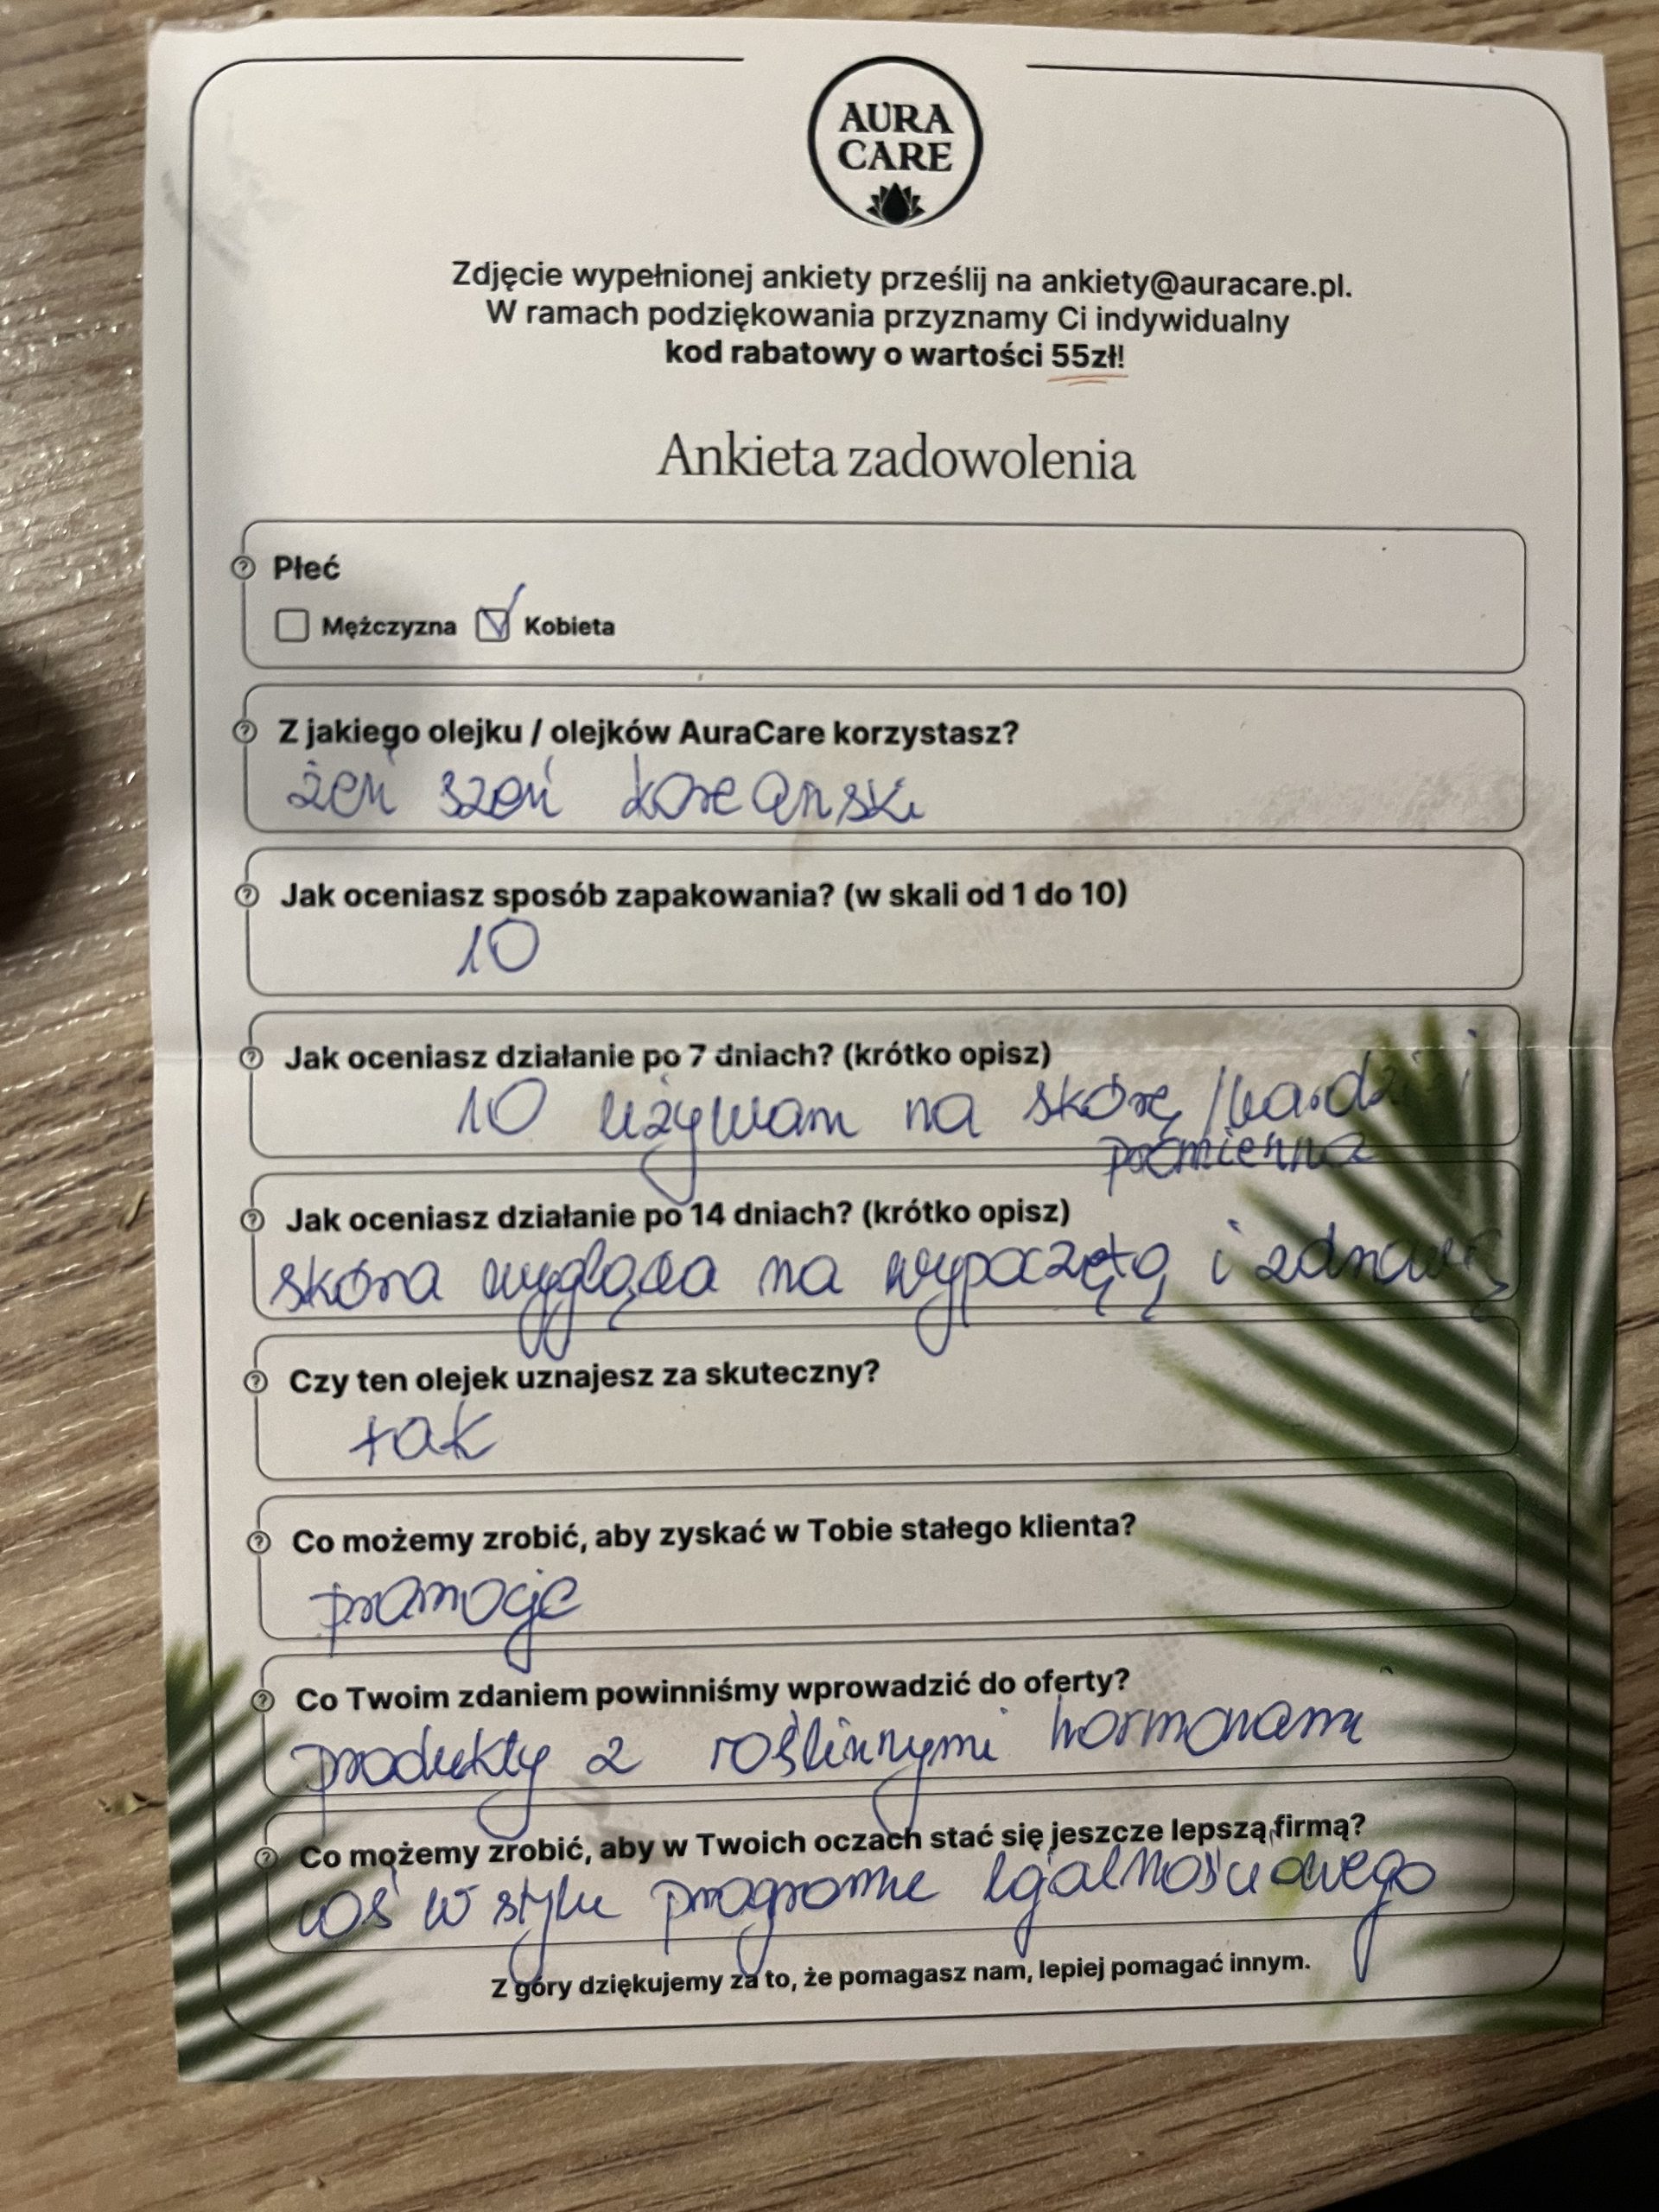 AURA
CARE
Zdjęcie wypełnionej ankiety prześlij na ankiety@auracare.pl.
W ramach podziękowania przyznamy Ci indywidualny
kod rabatowy o wartości 55zł!
Ankieta zadowolenia
Płeć
Mężczyzna Kobieta
Z jakiego olejku / olejków AuraCare korzystasz?
żeń szeń koreański
Jak oceniasz sposób zapakowania? (w skali od 1 do 10)
10
Jak oceniasz działanie po 7 dniach? (krótko opisz)
10 używam na skórę / bardziej
promienna
Jak oceniasz działanie po 14 dniach? (krótko opisz)
skóra wygląda na wypoczętą i zdrową
Czy ten olejek uznajesz za skuteczny?
tak
Co możemy zrobić, aby zyskać w Tobie stałego klienta?
promocje
Co Twoim zdaniem powinniśmy wprowadzić do oferty?
produkty z roślinnymi hormonami
Co możemy zrobić, aby w Twoich oczach stać się jeszcze lepszą firmą?
coś w stylu programu lojalnościowego
Z góry dziękujemy za to, że pomagasz nam, lepiej pomagać innym.